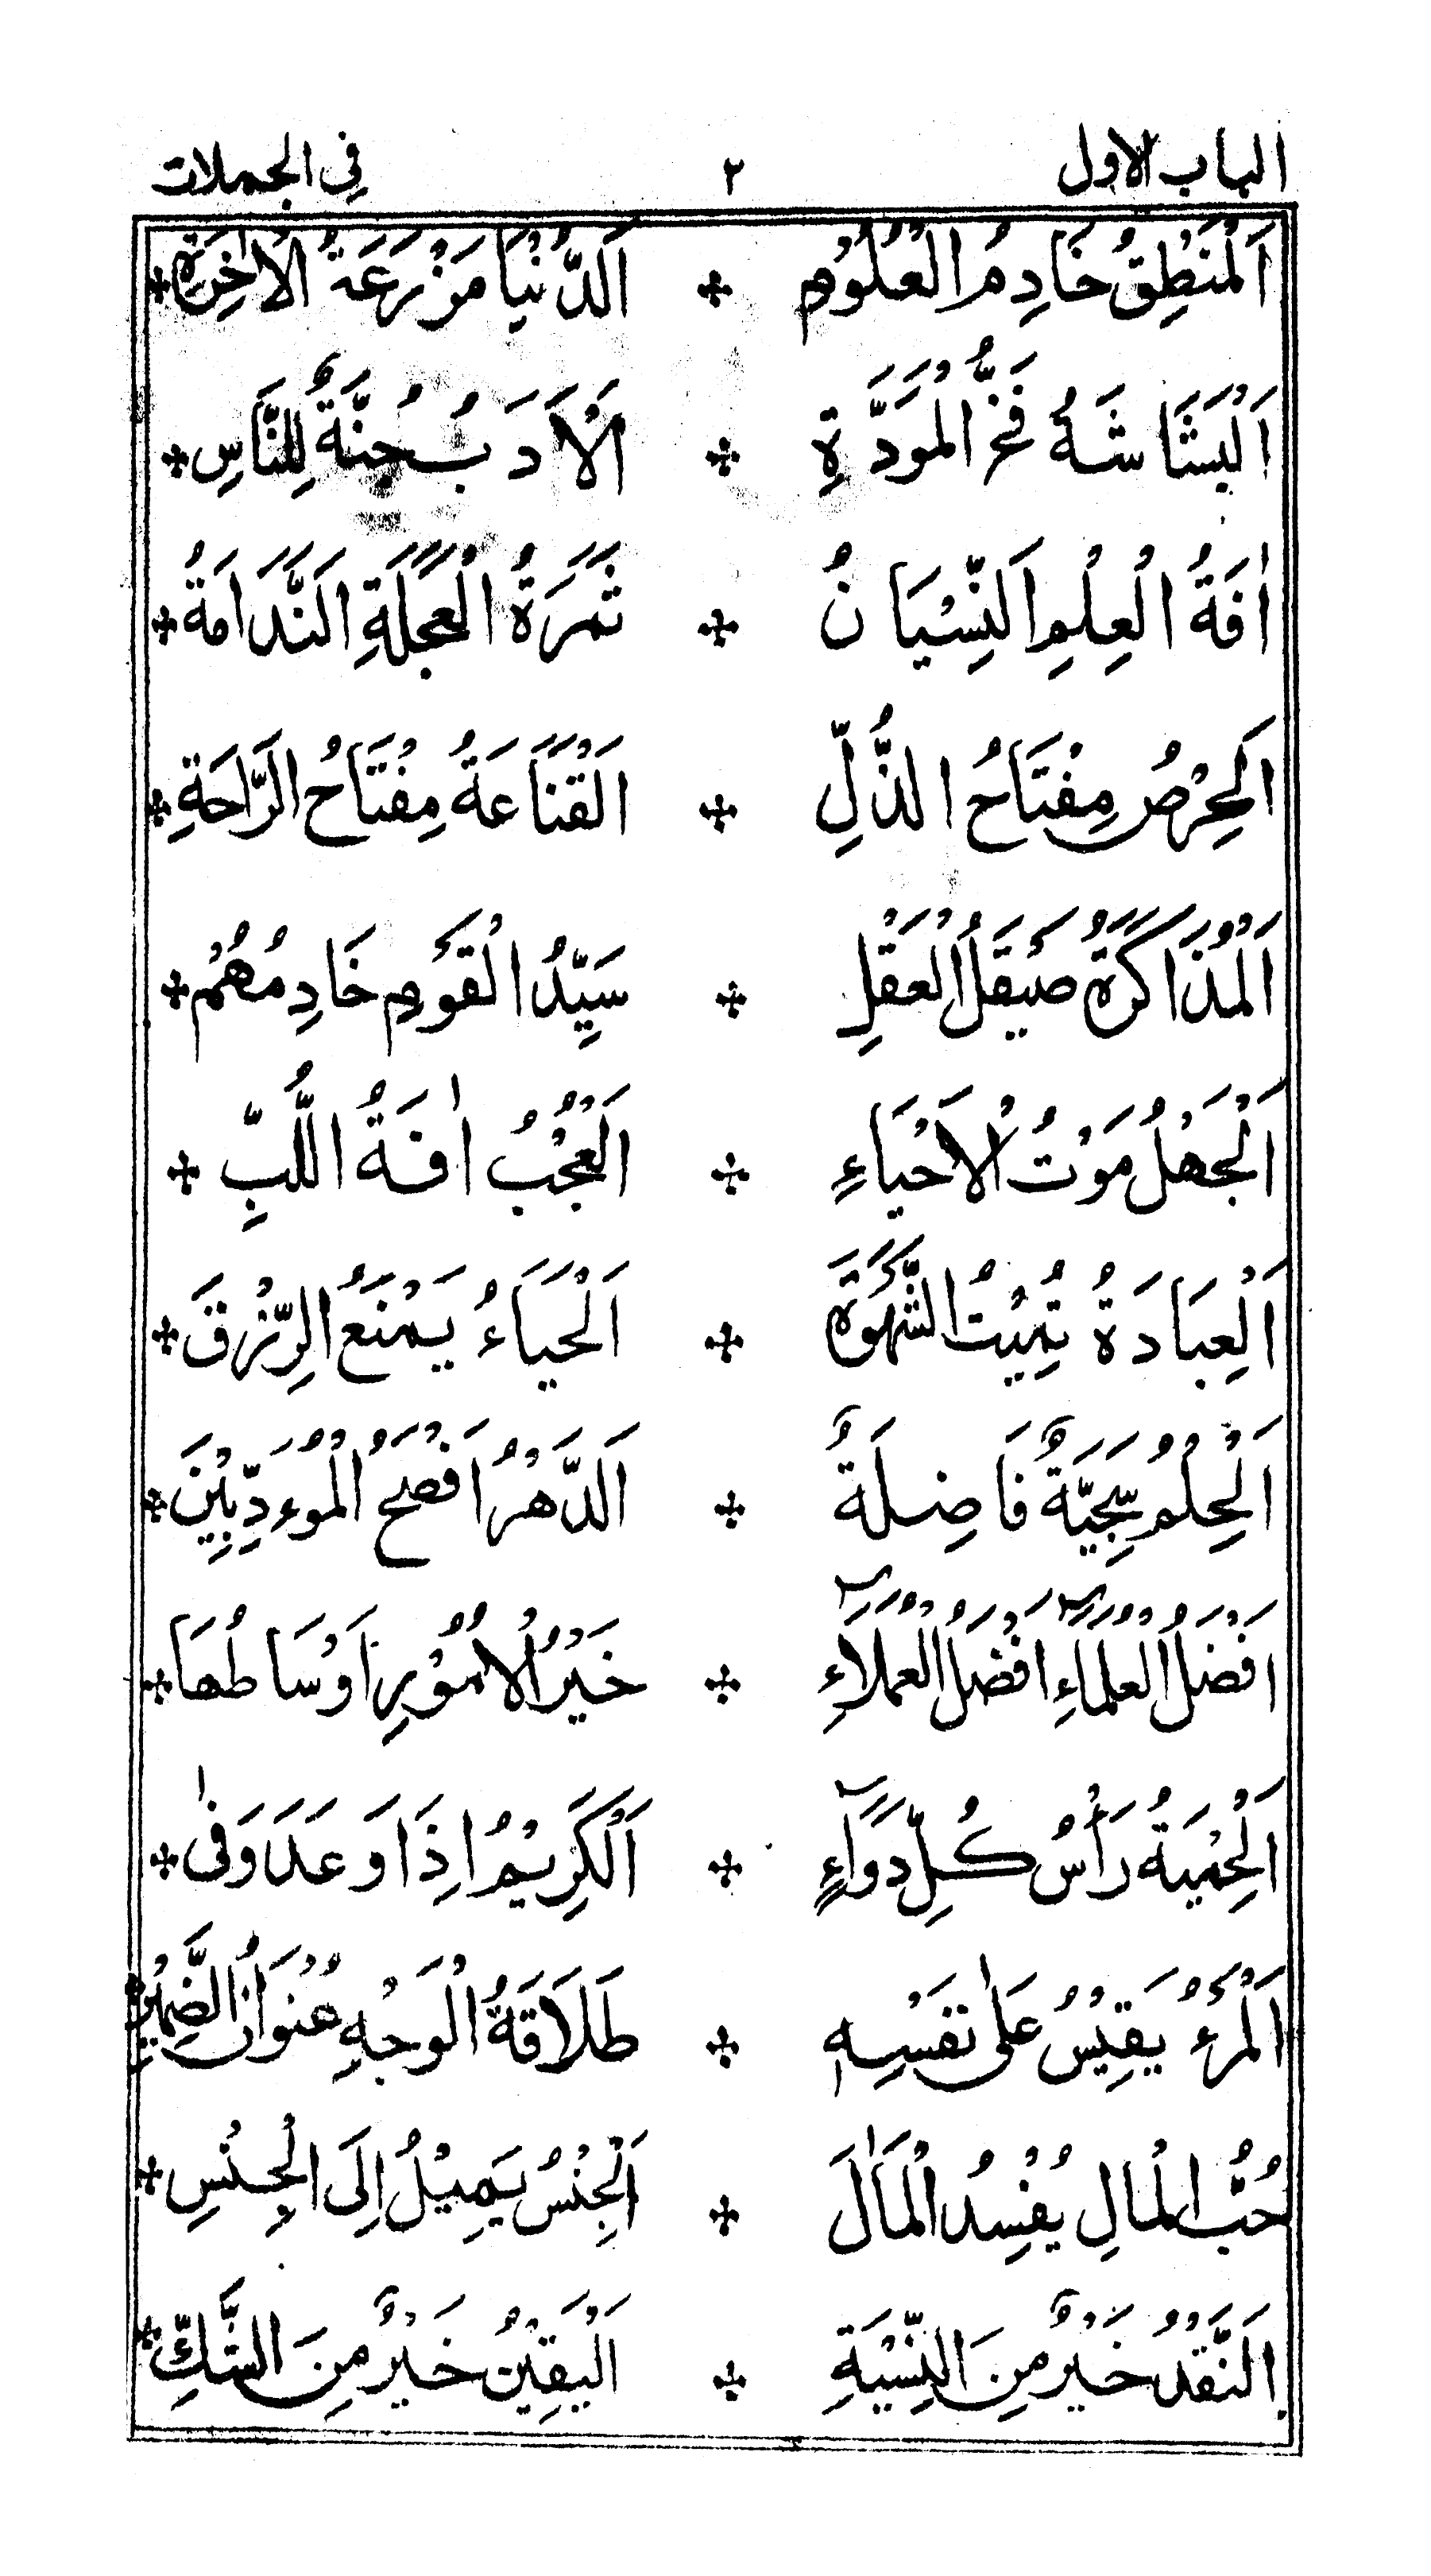 الباب الاول ٢ في الجملات
اَلْمَنْطِقُ خَادِمُ الْعُلُوْمِ ✤ اَلدُّنْيَا مَزْرَعَةُ الْاٰخِرَةِ ✤
اَلْبَشَاشَةُ فَخُّ الْمَوَدَّةِ ✤ اَلْاَدَبُ جُنَّةٌ لِلنَّاسِ ✤
اٰفَةُ الْعِلْمِ اَلنِّسْيَانُ ✤ ثَمَرَةُ الْعَجَلَةِ اَلنَّدَامَةُ ✤
اَلْحِرْصُ مِفْتَاحُ الذُّلِّ ✤ اَلْقَنَاعَةُ مِفْتَاحُ الرَّاحَةِ ✤
اَلْمُذَاكَرَةُ صَيْقَلُ الْعَقْلِ ✤ سَيِّدُ الْقَوْمِ خَادِمُهُمْ ✤
اَلْجَهْلُ مَوْتُ الْاَحْيَاءِ ✤ اَلْعُجْبُ اٰفَةُ اللُّبِّ ✤
اَلْعِبَادَةُ تُمِيْتُ الشَّهْوَةَ ✤ اَلْحَيَاءُ يَمْنَعُ الرِّزْقَ ✤
اَلْحِلْمُ سَجِيَّةٌ فَاضِلَةٌ ✤ اَلدَّهْرُ اَفْصَحُ الْمُوءَدِّبِيْنَ ✤
اَفْضَلُ الْعُلَمَآءِ اَفْضَلُ الْعُمَلَآءِ ✤ خَيْرُ الْاُمُوْرِ اَوْسَاطُهَا ✤
اَلْحِمْيَةُ رَأْسُ كُلِّ دَوَآءٍ ✤ اَلْكَرِيْمُ اِذَا وَعَدَ وَفٰى ✤
اَلْمَرْءُ يَقِيْسُ عَلٰى نَفْسِهٖ ✤ طَلَاقَةُ الْوَجْهِ عُنْوَانُ الضَّمِيْرِ
حُبُّ الْمَالِ يُفْسِدُ الْمَاٰلَ ✤ اَلْجِنْسُ يَمِيْلُ اِلَى الْجِنْسِ ✤
اَلنَّقْدُ خَيْرٌ مِنَ النِّسْيَةِ ✤ اَلْيَقِيْنُ خَيْرٌ مِنَ الشَّكِّ ✤